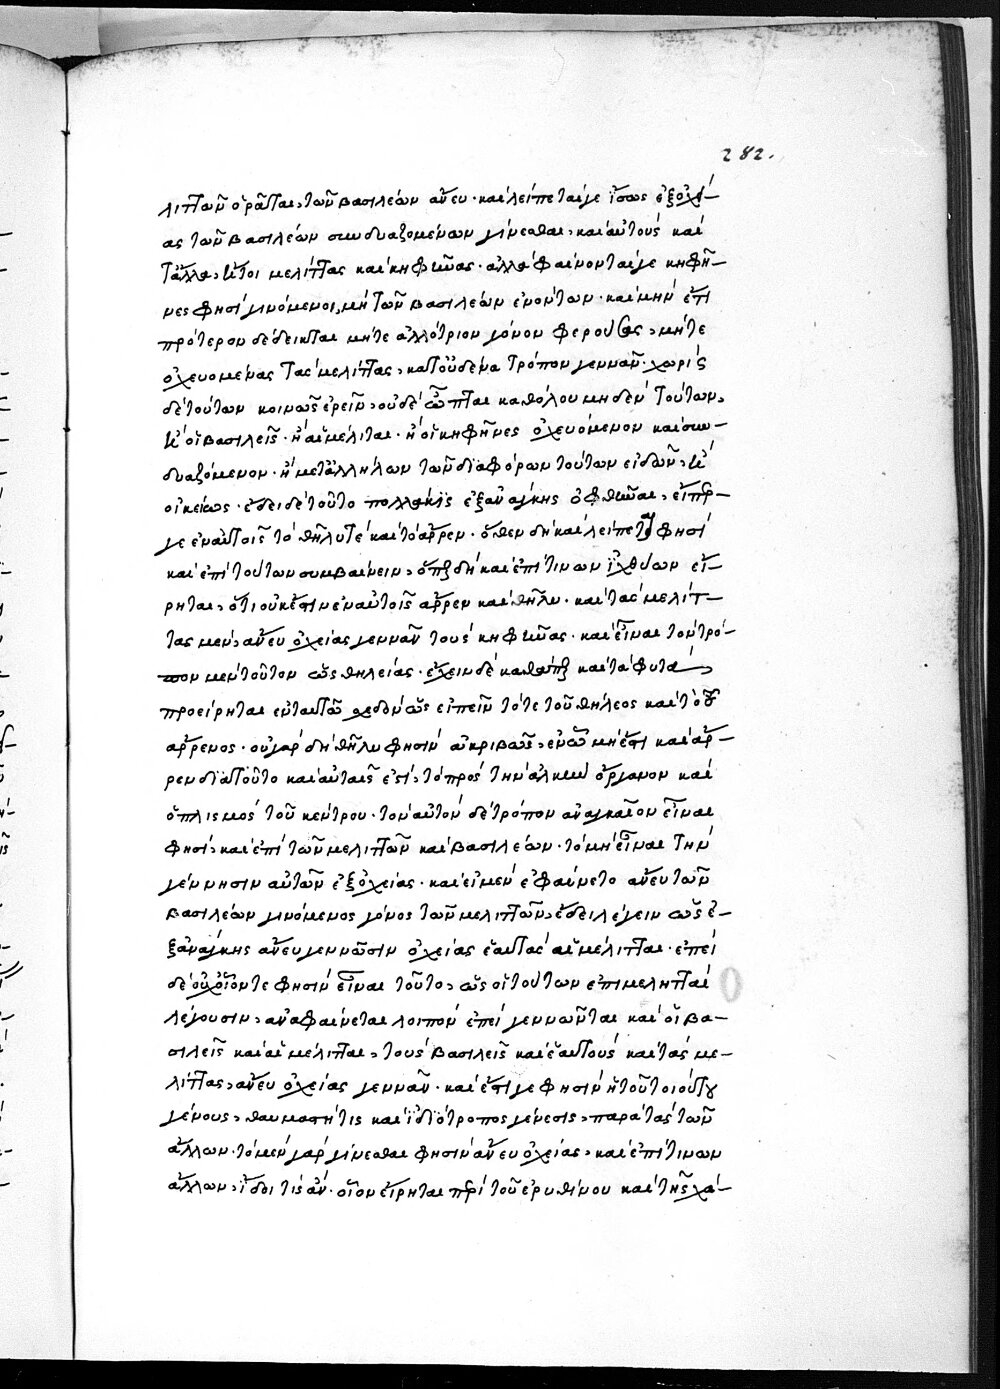 282.
λιττῶν ὁρᾶται, τῶν βασιλέων ἄνευ· καὶ λείπεταί γε ἴσως ἐξ ὀχεί-
ας τῶν βασιλέων συνδυαζομένων γίνεσθαι, καὶ αὐτοὺς καὶ
τἄλλα, ἤτοι μελίττας καὶ κηφῆνας· ἀλλὰ φαίνονταί γε κηφῆ-
νες φησὶ γινόμενοι, μὴ τῶν βασιλέων ἐνόντων· καὶ μὴν ἔτι
πρότερον δέδεικται μήτε ἀλλότριον γόνον φερούσας, μήτε
ὀχευομένας τὰς μελίττας, κατ' οὐδένα τρόπον γεννᾶν· χωρὶς
δὲ τούτων κοινῶς ἐρεῖν, οὐδὲ ὦπται καθόλου μηδὲν τούτων,
ἢ οἱ βασιλεῖς· ἢ αἱ μέλιται· ἢ οἱ κηφῆνες ὀχευόμενον καὶ συν-
δυαζόμενον· ἢ μετ' ἀλλήλων τῶν διαφόρων τούτων εἰδῶν, ἢ
οἰκείως· ἔδει δὲ τοῦτο πολλάκις ἐξ ἀνάγκης ὀφθῆναι, εἴπερ
γε ἐν αὐτοῖς τὸ θῆλυ τὲ καὶ τὸ ἄρρεν· ὅθεν δὴ καὶ λείπεται φησὶ
καὶ ἐπὶ τούτων συμβαίνειν, ὅπερ δὴ καὶ ἐπί τινων ἰχθύων εἴ-
ρηται, ὅτι οὐκ ἔστιν ἐν αὐτοῖς ἄρρεν καὶ θῆλυ· καὶ τὰς μελίτ-
τας μὲν, ἄνευ ὀχείας γεννᾶν τοὺς κηφῆνας· καὶ εἶναι τὸν τρό-
πον μὲν τοῦτον ὡς θηλείας· ἔχειν δὲ καθάπερ καὶ τὰ φυτὰ,
προείρηται ἐν ταυτῶ σχεδὸν ὡς εἰπεῖν τό τε τοῦ θήλεος καὶ τὸ τοῦ
ἄρρενος· οὐ γὰρ δὴ θῆλυ φησὶν ἀκριβῶς, ἐν ὧ μή ἐστι καὶ ἄρ-
ρεν διὰ τοῦτο καὶ αὐταῖς ἐστὶ, τὸ πρὸς τὴν ἀλκὴν ὄργανον καὶ
ὁπλισμὸς τοῦ κέντρου· τὸν αὐτὸν δὲ τρόπον ἀναγκαῖον εἶναι
φησὶ, καὶ ἐπὶ τῶν μελιττῶν καὶ βασιλέων· τὸ μὴ εἶναι τὴν
γέννησιν αὐτῶν ἐξ ὀχείας· καὶ εἰ μὲν ἐφαίνετο ἄνευ τῶν
βασιλέων γινόμενος γόνος τῶν μελιττῶν, ἔδει λέγειν ὡς ἐ-
ξανάγκης ἄνευ γεννῶσιν ὀχείας ἑαυτὰς αἱ μέλιτται· ἐπεὶ
δὲ οὐχ οἷόντε φησὶν εἶναι τοῦτο, ὡς οἱ τούτων ἐπιμεληταὶ
λέγουσιν, ἀναφαίνεται λοιπὸν ἐπεὶ γεννῶνται καὶ οἱ βα-
σιλεῖς καὶ αἱ μέλιτται, τοὺς βασιλεῖς καὶ ἑαυτοὺς καὶ τὰς με-
λίττας, ἄνευ ὀχείας γεννᾶν· καὶ ἔστι γε φησὶν ἡ τοῦ τοιούτου
γένους, θαυμαστή τις καὶ ἰδιότροπος γένεσις, παρὰ τὰς τῶν
ἄλλων· τὸ μὲν γὰρ γίνεσθαι φησὶν ἄνευ ὀχείας, καὶ ἐπί τινων
ἄλλων, ἴδοι τὶς ἄν· οἷον εἴρηται περὶ τοῦ ἐρυθίνου καὶ τῆς χά-